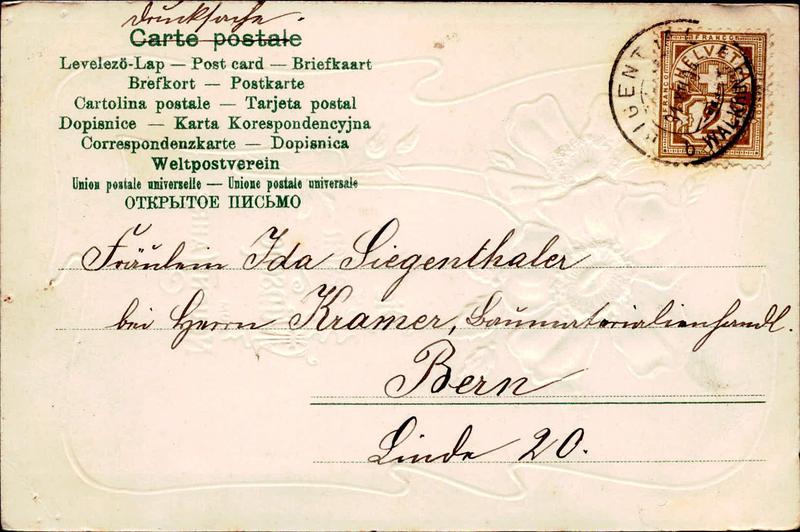 Drucksache.
Carte postale
Levelezö-Lap — Post card — Briefkaart
Brefkort — Postkarte
Cartolina postale — Tarjeta postal
Dopisnice — Karta Korespondencyjna
Correspondenzkarte — Dopisnica
Weltpostverein
Union postale universelle — Unione postale universale
ОТКРЫТОЕ ПИСЬМО
FRANCO
HELVETIA
Fräulein Ida Siegenthaler
bei Herrn Kramer, Baumaterialienhandl.
Bern
Linde 20.